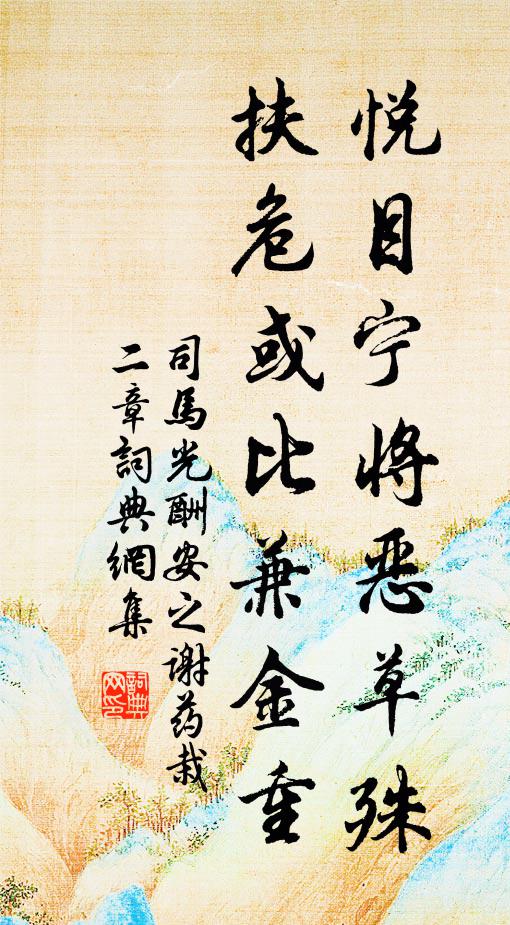 悦目宁将恶草殊
扶危或比兼金重
司馬光酬安之谢药栽
二章詞典網集
詞典網印